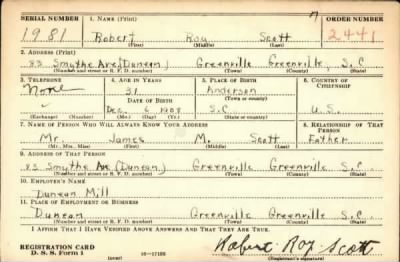 SERIAL NUMBER 1. NAME (Print) ORDER NUMBER
1981 Robert Roy Scott 2441
(First) (Middle) (Last)
2. ADDRESS (Print)
83 Smythe Ave (Duncan) Greenville Greenville, S.C
(Number and street or R. F. D. number) (Town) (County) (State)
3. TELEPHONE 4. AGE IN YEARS 5. PLACE OF BIRTH 6. COUNTRY OF CITIZENSHIP
None 31 Anderson
DATE OF BIRTH (Town or county)
Dec. 6 1908 S.C U.S.
(Exchange) (Number) (Mo.) (Day) (Yr.) (State or country)
7. NAME OF PERSON WHO WILL ALWAYS KNOW YOUR ADDRESS 8. RELATIONSHIP OF THAT PERSON
Mr. James M. Scott Father
(Mr., Mrs., Miss) (First) (Middle) (Last)
9. ADDRESS OF THAT PERSON
83 Smythe Ave (Duncan) Greenville Greenville S.C
(Number and street or R. F. D. number) (Town) (County) (State)
10. EMPLOYER'S NAME
Duncan Mill
11. PLACE OF EMPLOYMENT OR BUSINESS
Duncan Greenville Greenville S.C
(Number and street or R. F. D. number) (Town) (County) (State)
I AFFIRM THAT I HAVE VERIFIED ABOVE ANSWERS AND THAT THEY ARE TRUE.
REGISTRATION CARD
D. S. S. Form 1 (over) 16-17105 Robert Roy Scott
(Registrant's signature)